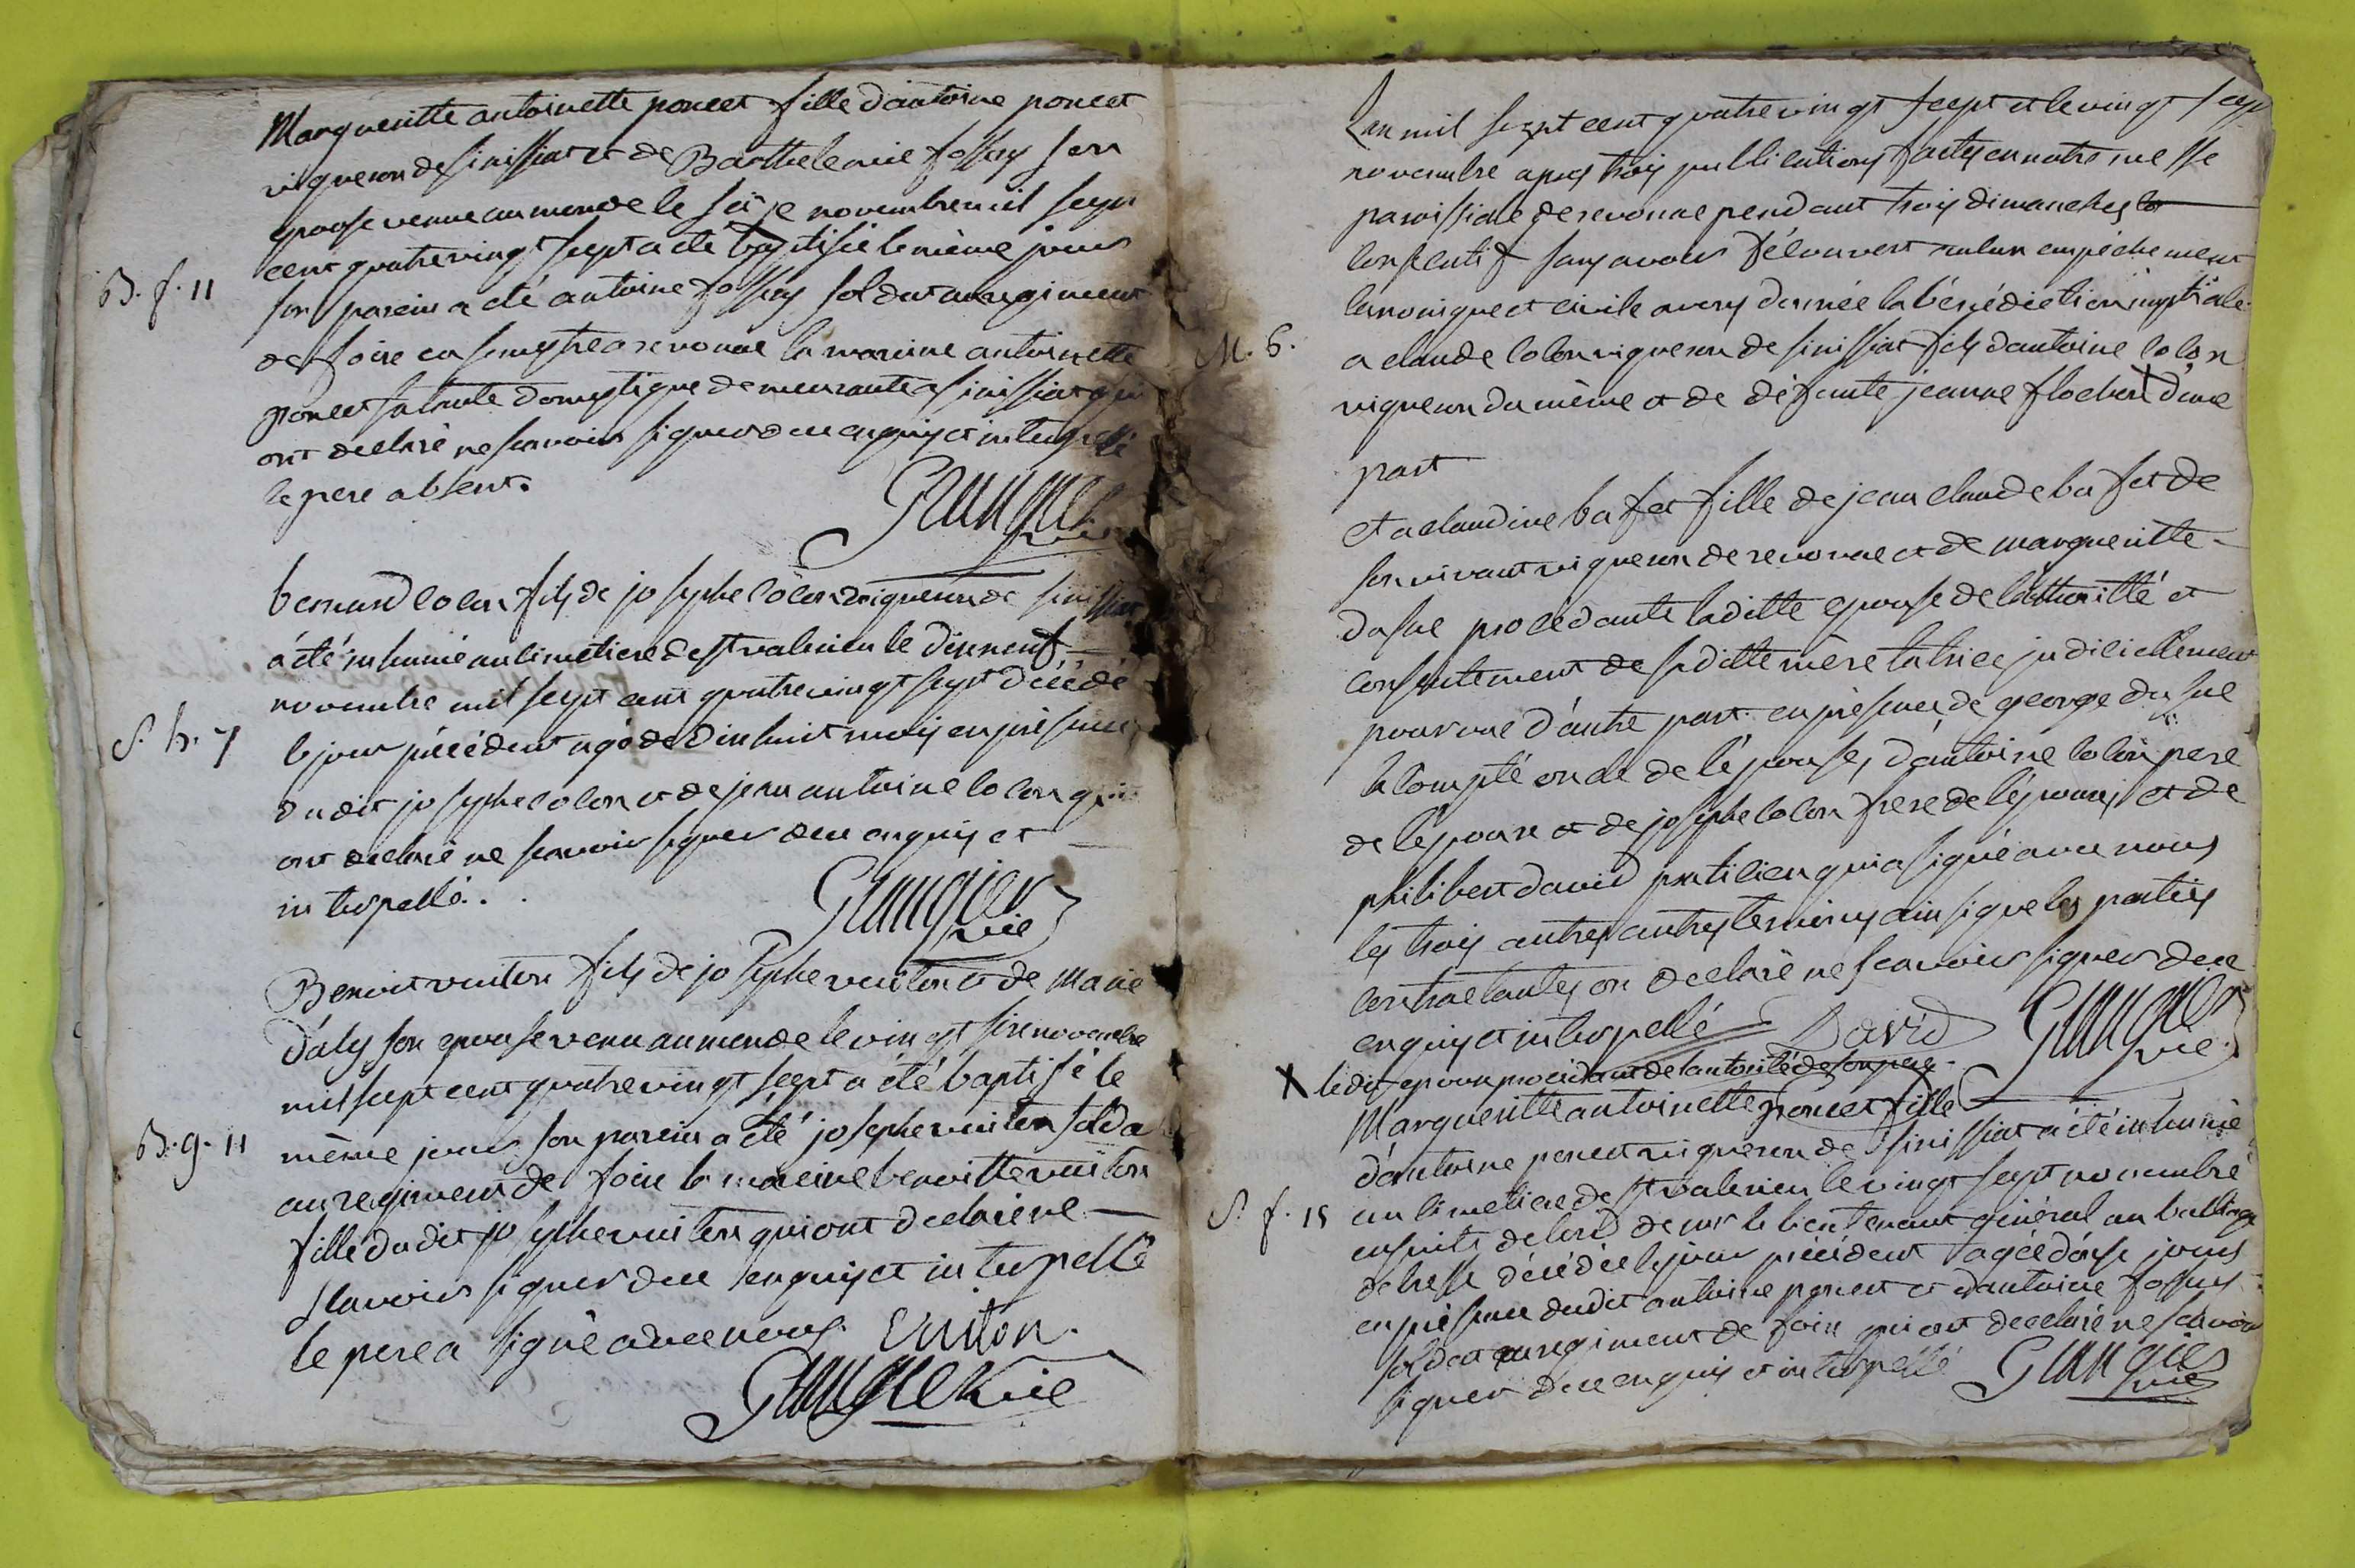 Margueritte antoinette poncet fille d'antoine poncet
vigneron de sinissiat et de Barthelemie fossey son
epouse venue au monde le seize novembre mil sept
cent quatre vingt sept a été baptisée le même jour
B. f. 11
son parein a été antoine fossey soldat au regiment
de foire en semestre a revonne la mareine antoinette
poncet sa tante domestique demeurante a sinissiat qui
ont declaré ne scavoir signer de ce enquis et interpellé
le pere absent.
Grangier
vic
bernard colon fils de josephe colon vigneron de sinissiat
a été inhumé au cimetiere de st valerien le dixneuf
novembre mil sept cent quatre vingt sept décédé
S. h. 7
le jour précédent agé de dixhuit mois en présence
dudit josephe colon et de jean antoine colon qui
ont declaré ne scavoir signer de ce enquis et
interpellé.
Grangier
vic
Benoit vuiton fils de josephe vuiton et de Marie
d'aly son epouse venu au monde le vingt six novembre
mil sept cent quatre vingt sept a été baptisé le
B. g. 11
même jour son parein a été josephe vuiton solda
au regiment de foire la mareine benoitte vuiton
fille dudit josephe vuiton qui ont declaré ne
scavoir signer de ce enquis et interpellé
le pere a signé avec nous. Vuiton.
Grangier vic
L'an mil sept cent quatre vingt sept et le vingt sept
novembre apres trois publications faites en notre messe
paroissiale de revonne pendant trois dimanches
consecutif sans avoir découvert aulcun empêchement
canonique et civile avons donnée la bénédiction nuptiale
M. 6.
a claude colon vigneron de sinissiat fils d'antoine colon
vigneron du même et de défunte jeanne flochon X d'une
part
et a claudine bafet fille de jean claude bafet de
son vivant vigneron de revonne et de margueritte
dasue procédante laditte epouse de l'authorité et
consentement de sa ditte mère tutrice judiciellement
pourvue d'autre part. en présence de george dasue
le compté oncle de l'épouse, d'antoine colon pere
de l'époux et de josephe colon frere de l'époux et de
philibert david praticien qui a signé avec nous
les trois autres autres temoins ainsi que les parties
contractantes on declaré ne scavoir signer de ce
enquis et interpellé David Grangier
vic
X ledit epoux procédant de l'autorité de son pere.
Margueritte antoinette poncet fille
d'antoine poncet vigneron de sinissiat a été inhumé
S. f. 15
au cimetiere de st valerien le vingt sept novembre
ensuite de lord de mr le lieutenant général au bailliage
de bresse décédée le jour précédent agée d'onze jours
en présence dudit antoine poncet et d'antoine fossey
soldat au regiment de foire qui ont declaré ne scavoir
signer de ce enquis et interpellé Grangier
vic